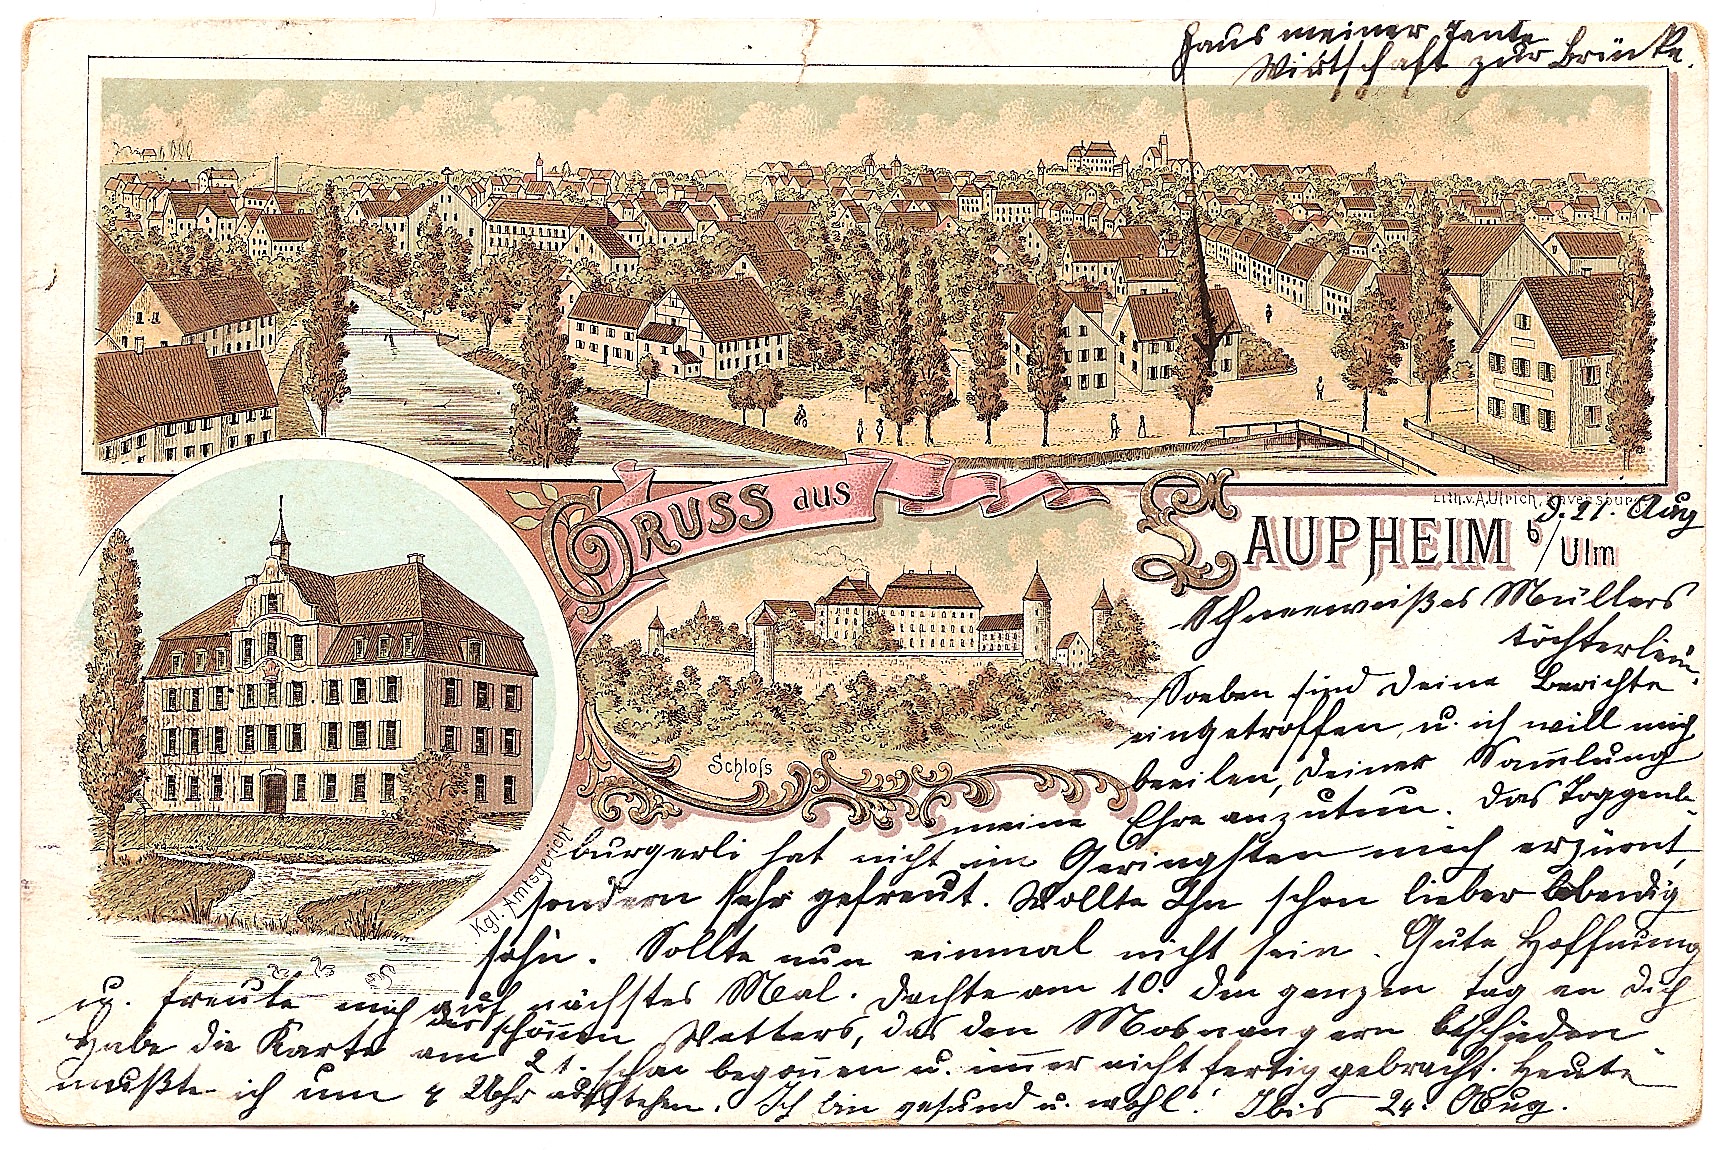 Haus meiner Tante
Wirtschaft zur Brücke.
Lith. v. A. Ulrich, Ravensburg
GRUSS aus
LAUPHEIM b/Ulm
d. 21. Aug
Schloſs
Kgl. Amtsgericht
Schneeweißes Müllers
töchterlein.
Soeben sind Deine Berichte
eingetroffen, u. ich will mich
beeilen, Deiner Sam̅lung
meine Ehre anzutun. Das Toggen-
burgerli hat nicht im Geringsten mich erzürnt,
sondern sehr gefreut. Wollte Ihn schon lieber lebendig
sehn. Sollte nun einmal nicht sein. Gute Hoffnung
u. freute mich auf nächstes Mal. Dachte am 10. den ganzen Tag an Dich
des schönen Wetters, das den Mosnangern beschieden
Habe die Karte am 21. schon begon̅en u. im̅er nicht fertig gebracht. Heute
mußte ich um 4 Uhr aufstehen. Ich bin gesund u. wohl! 24. Aug.